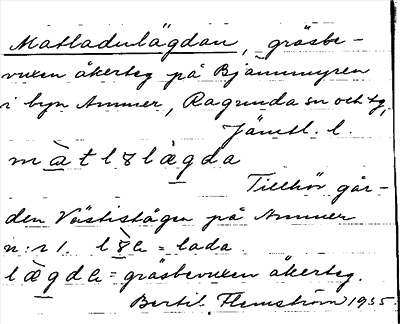 Matladulägdan, gräsbe-
vuxen åkerteg på Bjämmmyren
i byn Ammer, Ragunda sn och tg,
Jämtl. l.
màtlɜlàgda
Tillhör går-
den Västistågen på Ammer
n:r 1. lɜ̀e = lada.
làgde = gräsbevuxen åkerteg.
Bertil Flemström 1935.